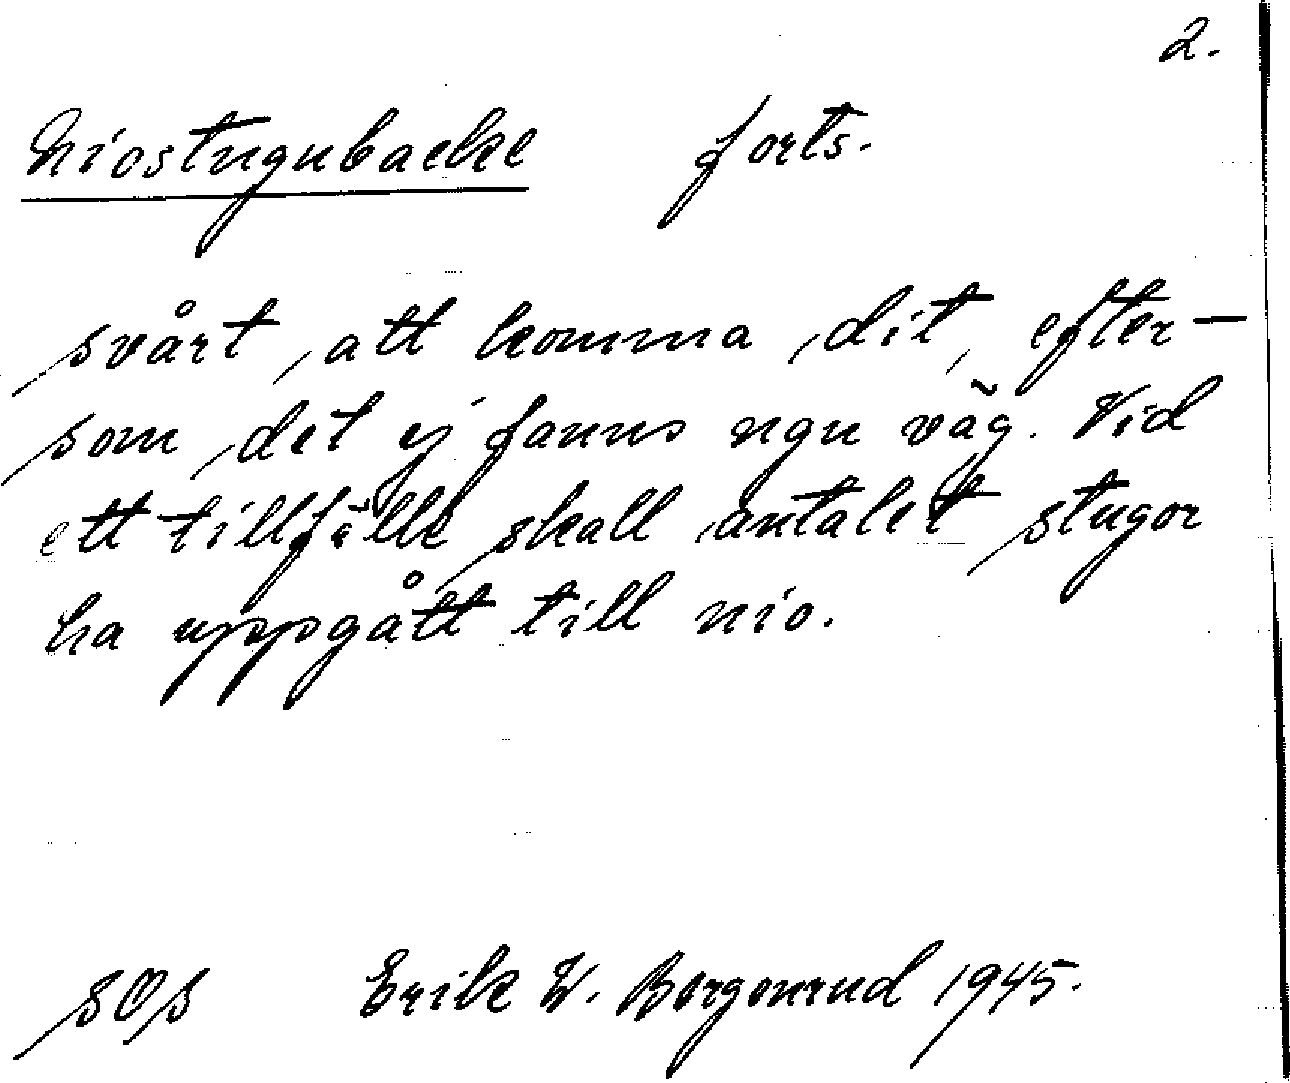 2.
Niostugubacke forts.
svårt att komma dit, efter-
som det ej fanns ngn väg. Vid
ett tillfälle skall antalet stugor
ha uppgått till nio.
SOS Erik W. Borgenrud 1945.